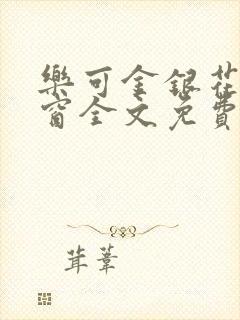 樂可金銀花
窗全文免費
茸葦